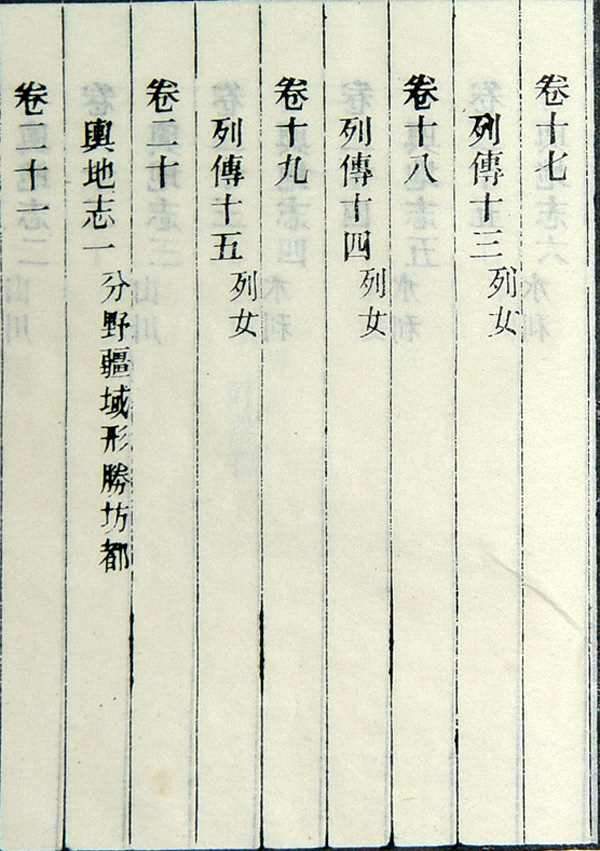 卷十七
列傳十三 列女
卷十八
列傳十四 列女
卷十九
列傳十五 列女
卷二十
輿地志一 分野疆域形勝坊都
卷二十一